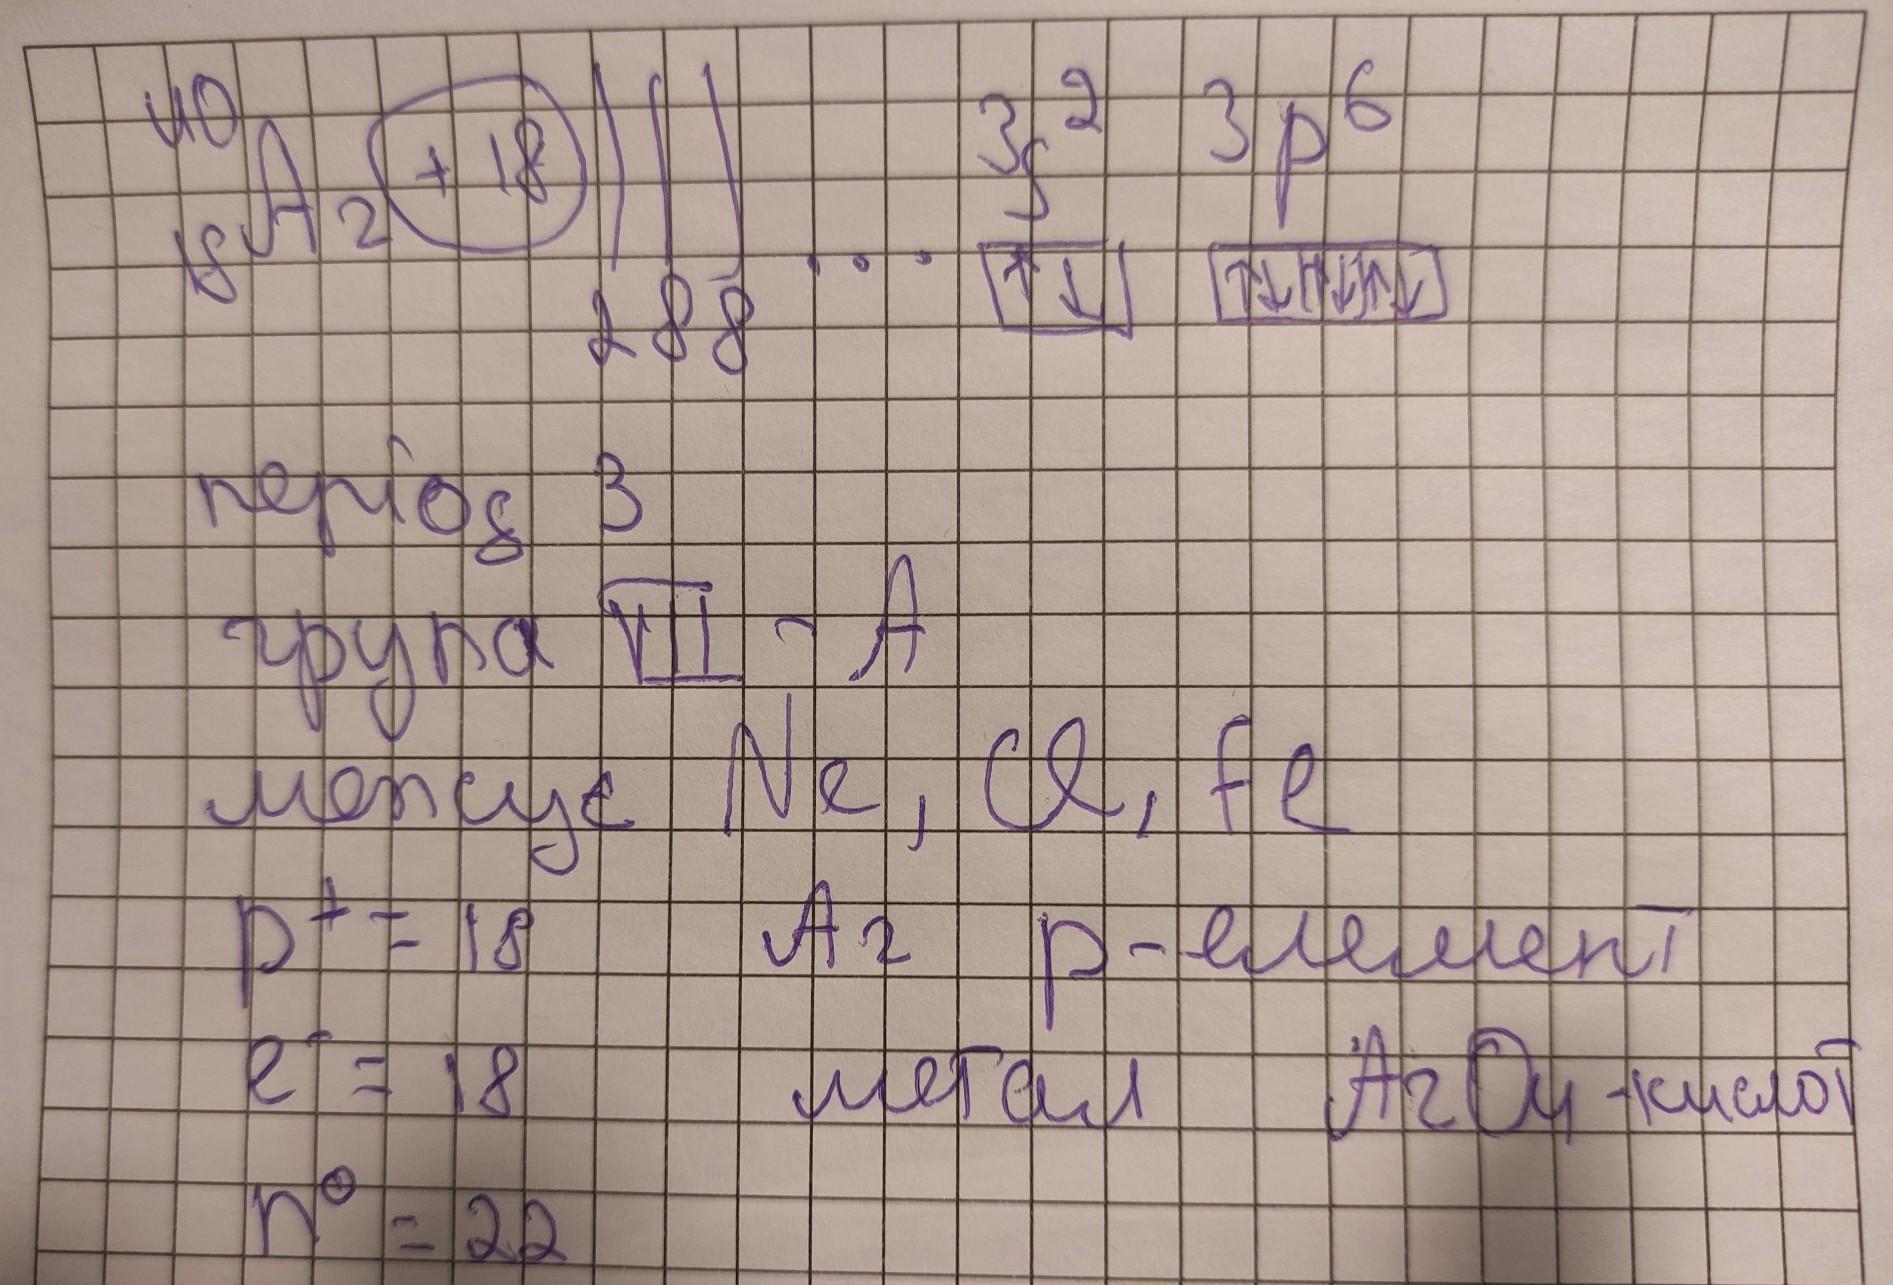 40
18 Ar +18 ) ) ) ... 3s² 3p⁶
2 8 8 ↑↓ ↑↓ ↑↓ ↑↓
період 3
група VII - A
межує Ne, Cl, Fe
p⁺ = 18 Ar p-елемент
e⁻ = 18 метал ArO₄-кислот
n⁰ = 22